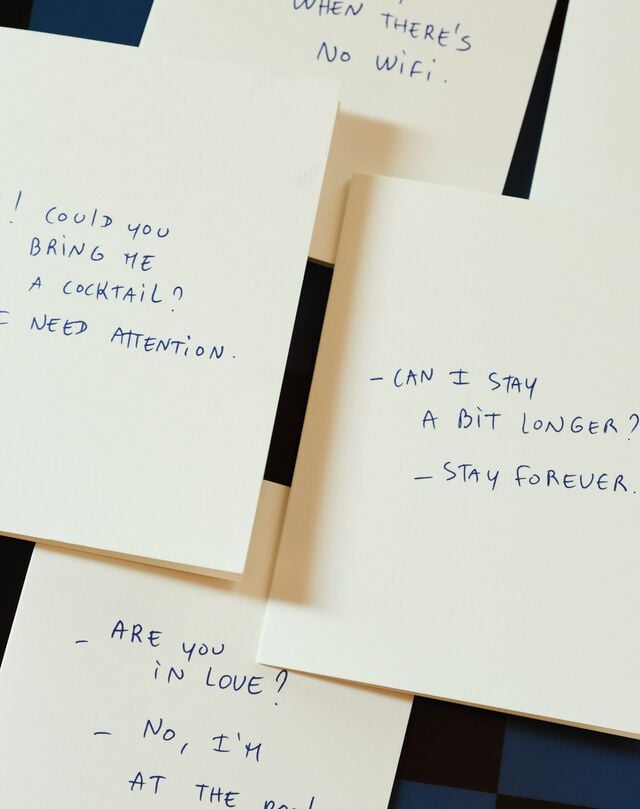 WHEN THERE'S
NO WiFi.
! COULD YOU
BRiNG ME
A COCKTAiL?
I NEED ATTENTiON.
- CAN I STAY
A BiT LONGER?
- STAY FOREVER.
- ARE YOU
iN LOVE?
- NO, I'M
AT THE